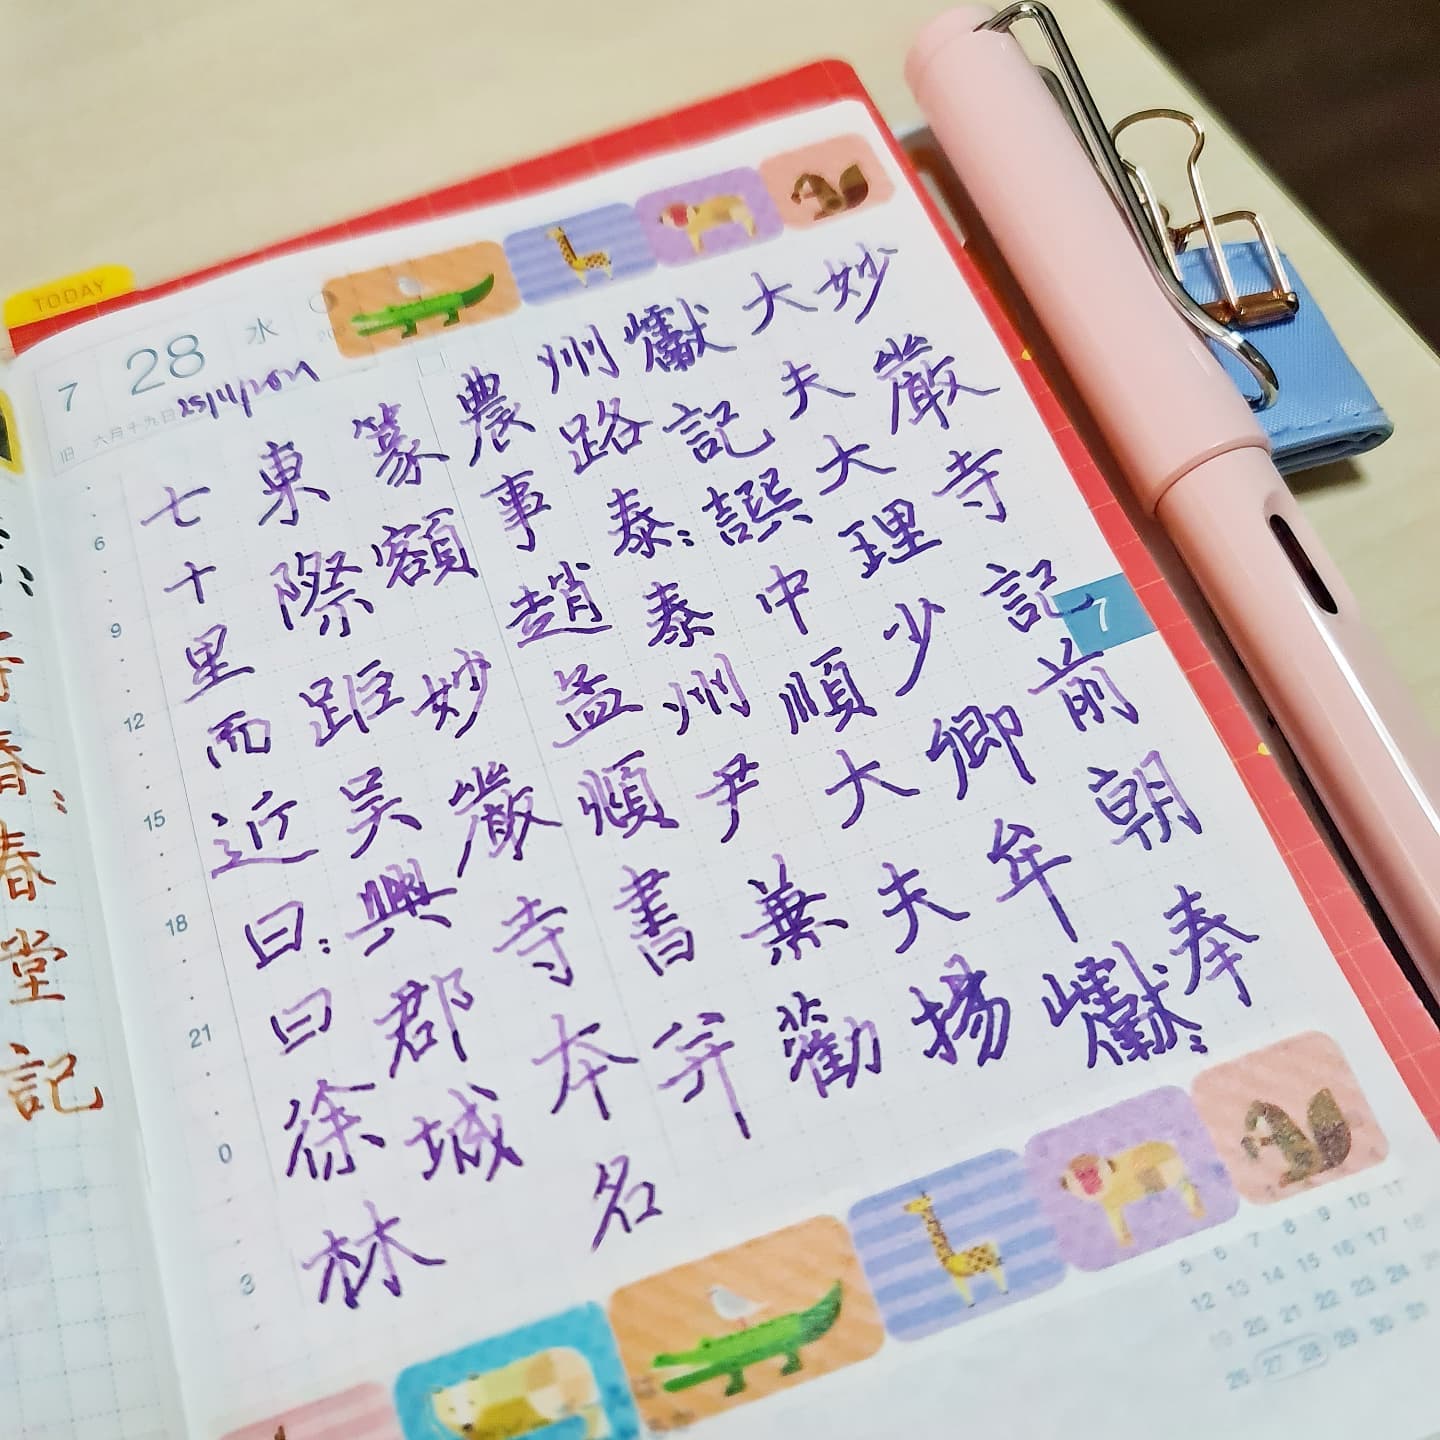 TODAY
7 28 水
旧 六月十九日
妙嚴寺記前朝奉
大夫大理少卿牟巘:
巘記譔中順大夫揚
州路泰:泰州尹兼勸
農事趙孟頫書并
篆額妙嚴寺本名
東際距吳興郡城
七十里而近曰:曰徐林
6
9
12
15
18
21
0
3
7
春:春堂記
5 6 7 8 9 10 11
12 13 14 15 16 17 18
19 20 21 22 23 24
26 27 28 29 30 31